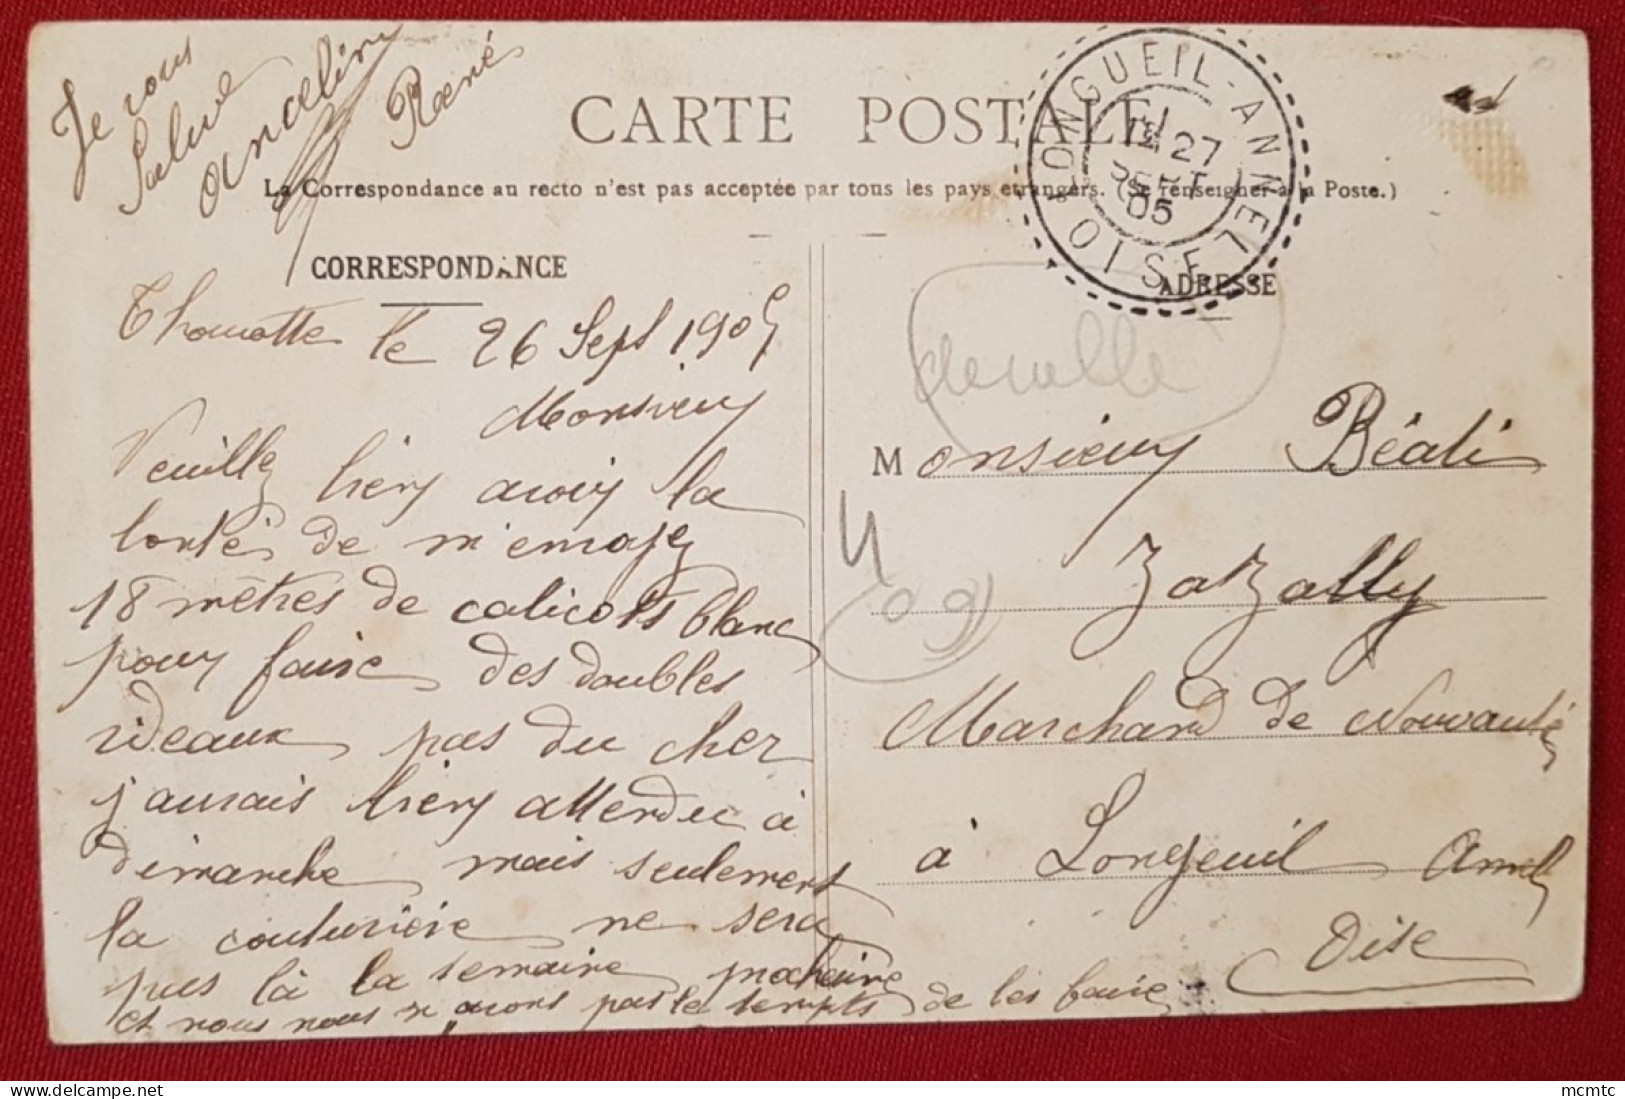 Je vous
Salue
Ancelin
René
CARTE POSTALE
La Correspondance au recto n'est pas acceptée par tous les pays étrangers. (Se renseigner à la Poste.)
LONGUEIL-ANNEL
27
SEPT
05
OISE
CORRESPONDANCE
ADRESSE
Thourotte le 26 Sept 1905
Monsieur
Veuillez bien avoir la
bonté de m'envoyez
18 mètres de calicots blanc
pour faire des doubles
rideaux pas du cher
j'aurais bien attendu à
dimanche mais seulement
la couturière ne sera
pas là la semaine prochaine
et nous nous n'avons pas le temps de les faire
Monsieur Béali
Zazally
Marchand de Nouvauté
à Longeuil Annel
Oise
4
09
mcmtc